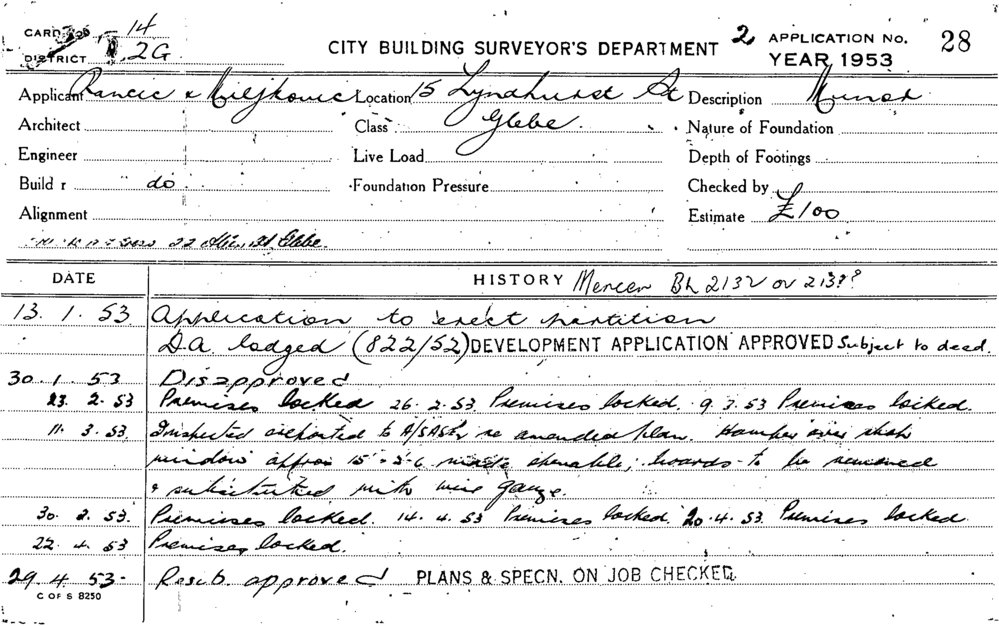 CARD No. 14
DISTRICT 2G
CITY BUILDING SURVEYOR'S DEPARTMENT 2 APPLICATION No. 28
YEAR 1953
Applicant Rancic & Miljkovic Location 15 Lyndhurst St Description Minor
Architect Class Glebe Nature of Foundation
Engineer Live Load Depth of Footings
Build r do Foundation Pressure Checked by
Alignment Estimate £100
22 St Glebe
DATE HISTORY Mercer BL 2132 or 2133?
13. 1. 53 Application to erect partition
D.A. lodged (822/52) DEVELOPMENT APPLICATION APPROVED Subject to deed.
30. 1. 53 Disapproved
23. 2. 53 Premises locked 26. 2. 53 Premises locked. 9. 3. 53 Premises locked.
11. 3. 53. Inspected & reported to re amended plan. over shop
window approx 15' made openable; boards to be removed
& substituted with wire gauze.
30. 3. 53. Premises locked. 14. 4. 53 Premises locked. 20. 4. 53. Premises locked.
22. 4. 53 Premises locked.
29. 4. 53 Resub. approved PLANS & SPECN. ON JOB CHECKED.
C OF S 8250